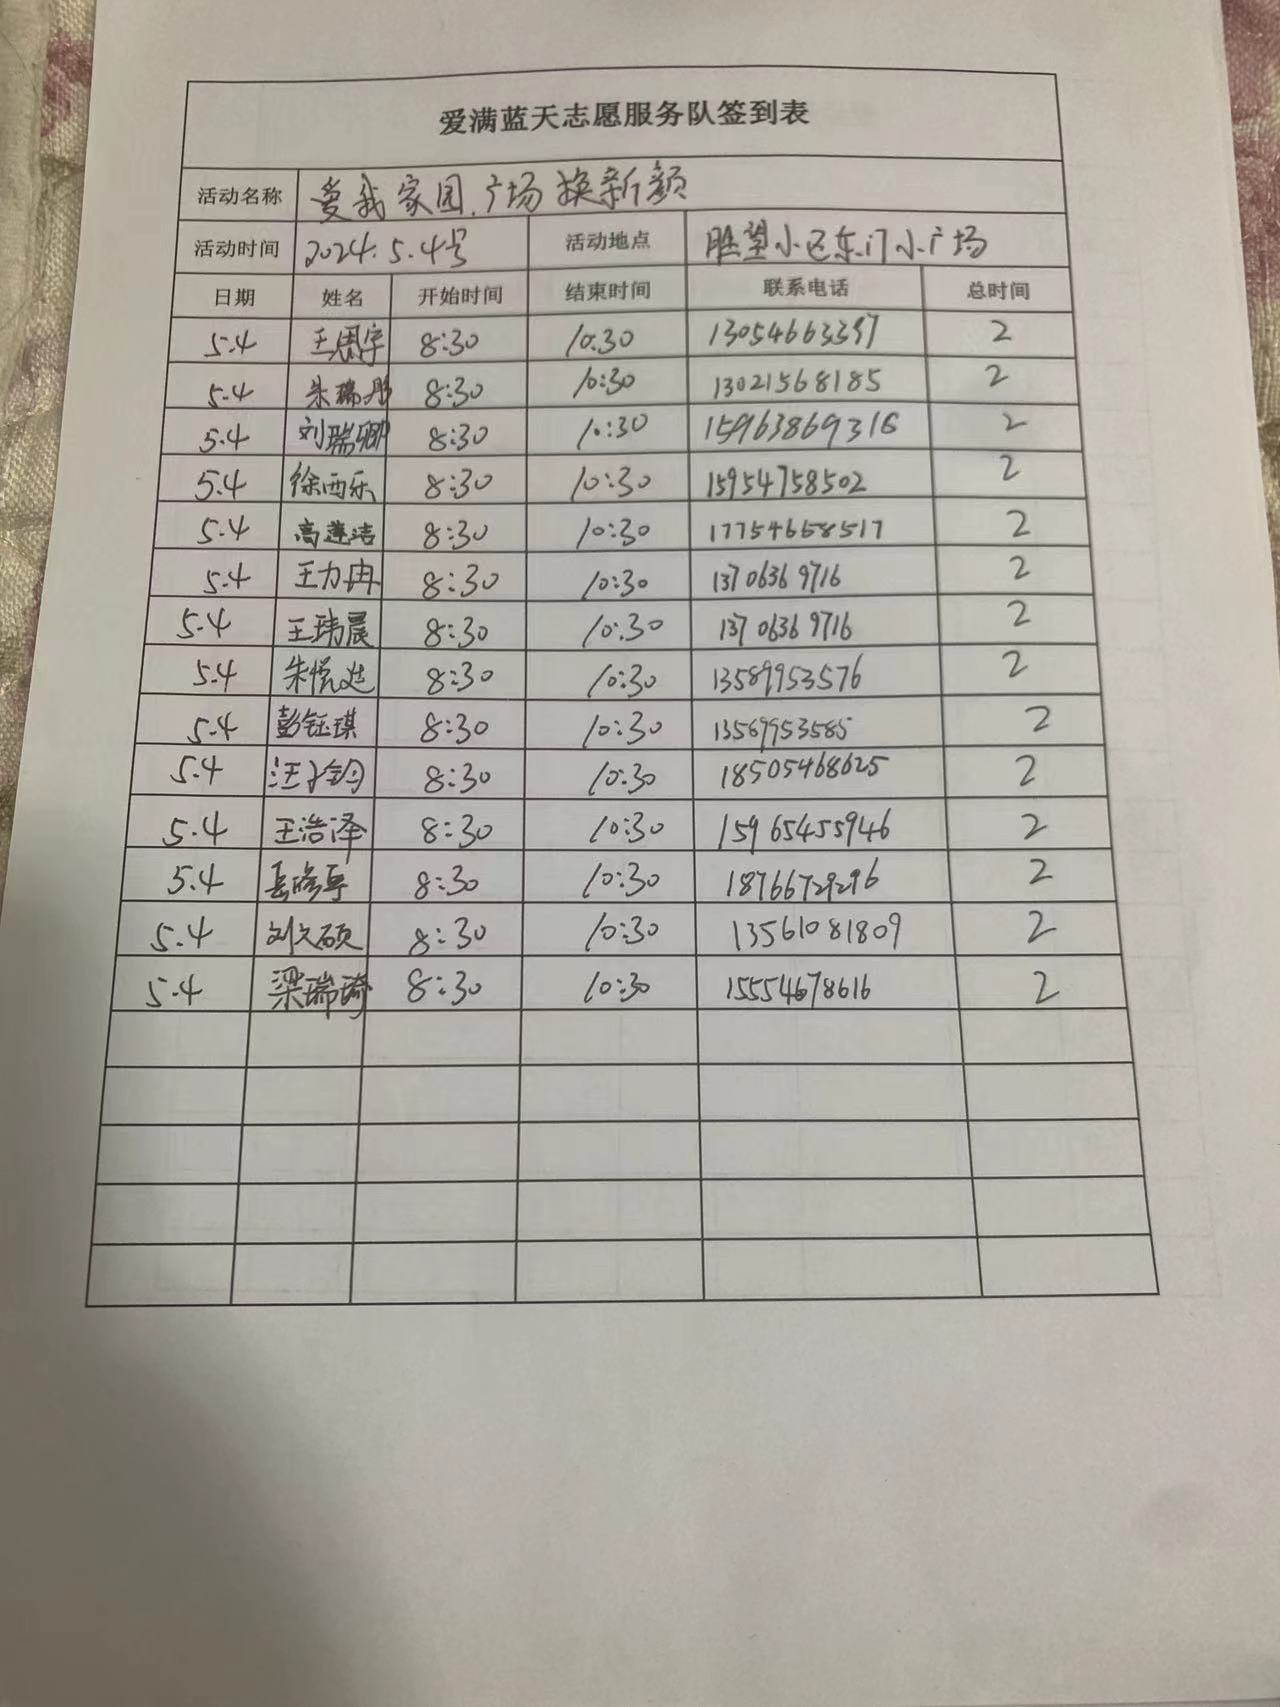 爱满蓝天志愿服务队签到表
活动名称 爱我家园.广场换新颜
活动时间 2024.5.4号 活动地点 胜望小区东门小广场
日期 姓名 开始时间 结束时间 联系电话 总时间
5.4 王思宇 8:30 10:30 13054663397 2
5.4 朱瑞彤 8:30 10:30 13021568185 2
5.4 刘瑞卿 8:30 10:30 15963869316 2
5.4 徐西乐 8:30 10:30 15954758502 2
5.4 高莲洁 8:30 10:30 17754658517 2
5.4 王力冉 8:30 10:30 13706369716 2
5.4 王玮晨 8:30 10:30 13706369716 2
5.4 8:30 10:30 13589953576 2
5.4 彭钰琪 8:30 10:30 13569953585 2
5.4 汪子钧 8:30 10:30 18505468625 2
5.4 王浩泽 8:30 10:30 15965455946 2
5.4 8:30 10:30 18766729296 2
5.4 刘文硕 8:30 10:30 13561081809 2
5.4 梁瑞琦 8:30 10:30 15554678616 2